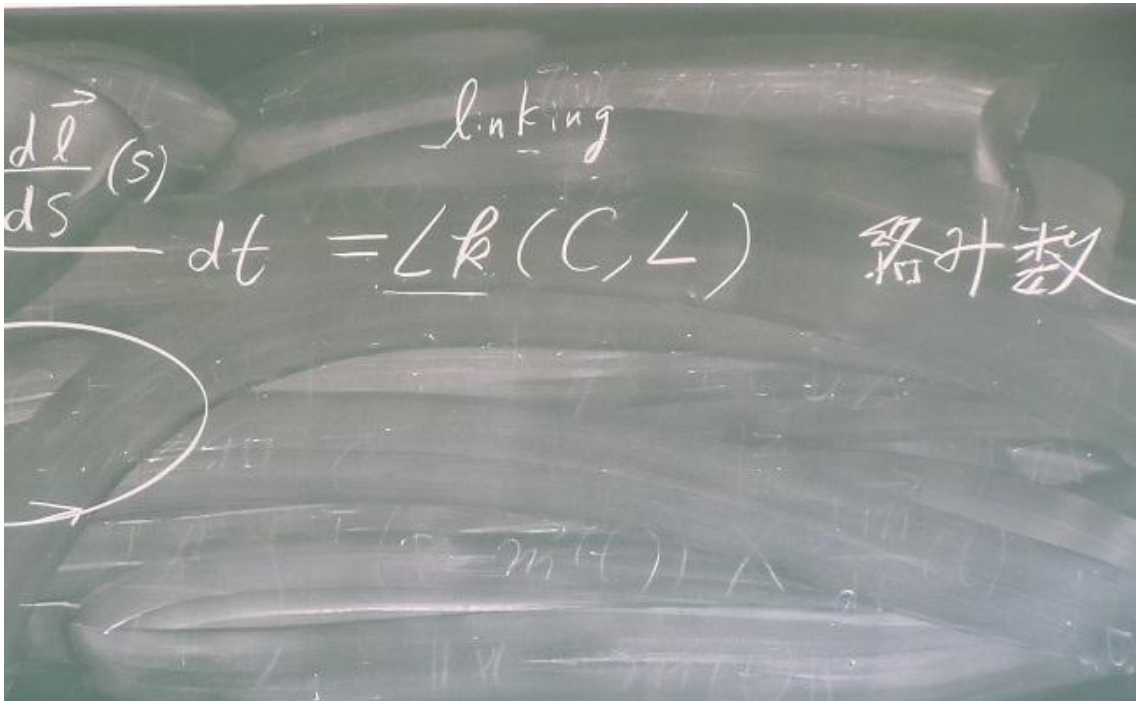 linking
dl⃗/ds (s)
dt = Lk (C, L) 絡み数